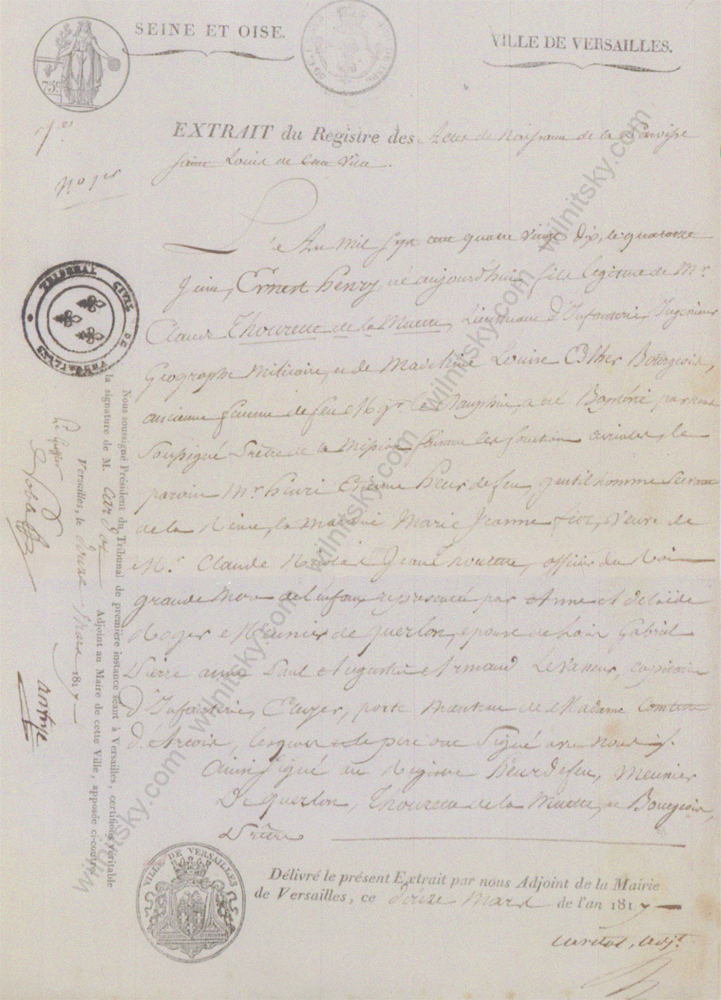 SEINE ET OISE.
VILLE DE VERSAILLES.
EXTRAIT du Registre des Actes de Naissance de la Paroisse
Saint Louis de Cette Ville.
N° 1er
L'An Mil Sept cent quatre vingt dix, le quatorze
Juin, Ernest henry, né aujourd'huy, fils légitime de Mr
Claude Thourette de la Muette, Lieutenant d'Infanterie, Ingénieur
Géographe Militaire, et de Madelaine Louise Esther Bourgeois,
ancienne femme de feu Mgr le Dauphin, a été Baptisé par nous
Soussigné Prêtre de la Mission faisant les fonctions curiales, le
parain Mr henri Etienne heurdefeu, gentilhomme servant
de la Reine, la maraine Marie Jeanne veuve de
Mr Claude Nicolas officier du Roi
grande Mere de l'enfant représentée par Anne Adelaide
Roger Meunier de querlon, épouse de Louis Gabriel
Pierre anne Paul Augustin Armand Levasseur, capitaine
d'Infanterie, Ecuyer, porte Manteau de Madame Comtesse
d'Artois, lesquels et le pere ont Signé avec nous
Ainsi signé au Registre heurdefeu, Meunier
De querlon, Thourette de la Muette, et Bourgeois,
Prêtre
Délivré le présent Extrait par nous Adjoint de la Mairie
de Versailles, ce Seize Mars de l'an 1817
adjt.
TRIBUNAL CIVIL DE VERSAILLES
Nous soussigné Président du Tribunal de première instance séant à Versailles, certifions véritable
la signature de M. Adjoint au Maire de cette Ville, apposée ci-contre
Versailles, le Seize Mars 1817
Le Greffier
VILLE DE VERSAILLES
wilnitsky.com wilnitsky.com wilnitsky.com wilnitsky.com wilnitsky.com